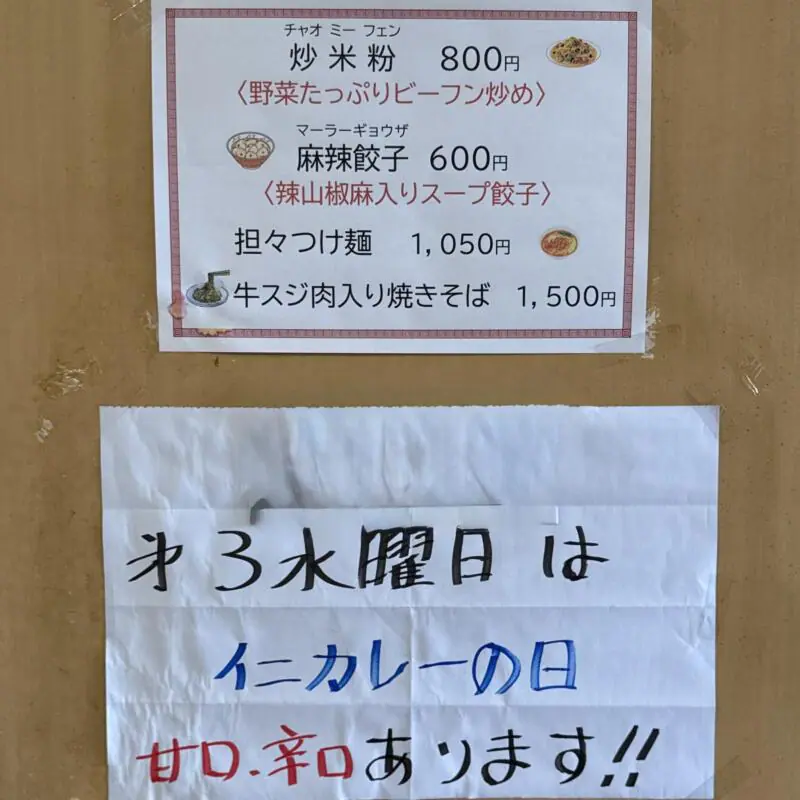 チャオ ミー フェン
炒米粉 800円
〈野菜たっぷりビーフン炒め〉
マーラーギョウザ
麻辣餃子 600円
〈辣山椒麻入りスープ餃子〉
担々つけ麺 1,050円
牛スジ肉入り焼きそば 1,500円
第3水曜日は
イニカレーの日
甘口.辛口あります!!